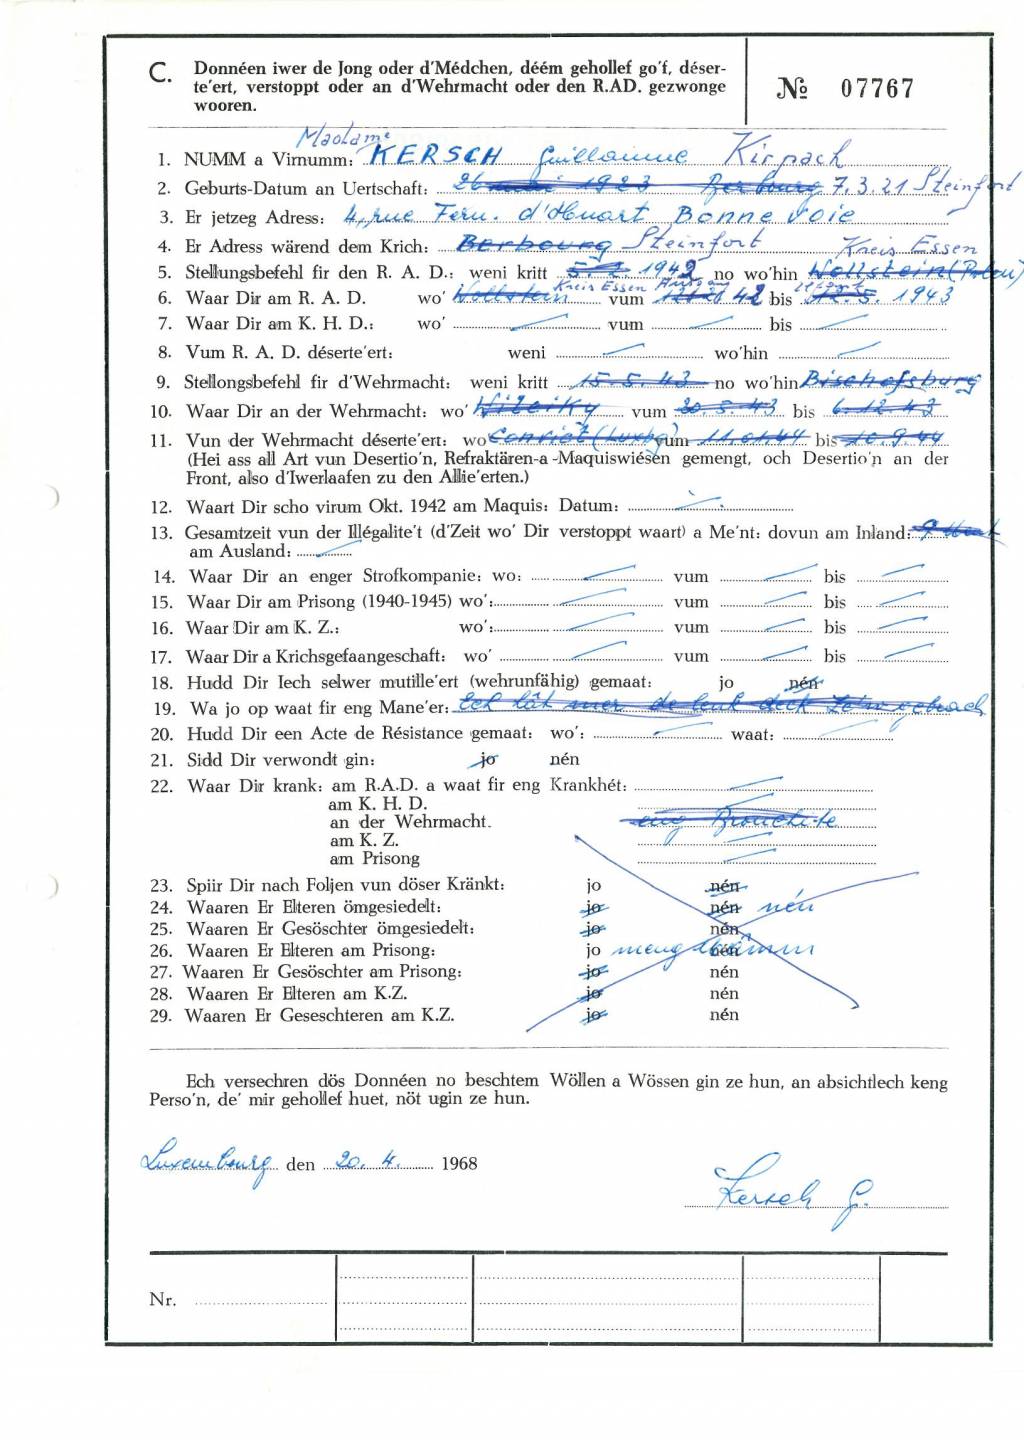 C. Donnéen iwer de Jong oder d'Médchen, déém gehollef go'f, déser-
te'ert, verstoppt oder an d'Wehrmacht oder den R.AD. gezwonge
wooren.
№ 07767
Madame
1. NUMM a Virnumm: KERSCH Guillaume Kirpach
2. Geburts-Datum an Uertschaft: 26 1923 Berbourg 7.3.21 Steinfort
3. Er jetzeg Adress: 4, rue Fern. d'Huart Bonnevoie
4. Er Adress wärend dem Krich: Berbourg Steinfort Kreis Essen
5. Stellungsbefehl fir den R. A. D.: weni kritt 1942 no wo'hin Wollstein (Polen)
6. Waar Dir am R. A. D. wo' Wollstein Kreis Essen vum 42 bis 12.5. 1943
7. Waar Dir am K. H. D.: wo' vum bis
8. Vum R. A. D. déserte'ert: weni wo'hin
9. Stellongsbefehl fir d'Wehrmacht: weni kritt 15-5-43 no wo'hin Bischofsburg
10. Waar Dir an der Wehrmacht: wo' Wileiky vum 20.5.43 bis 6-12-43
11. Vun der Wehrmacht déserte'ert: wo Convict (Luxbg) vum 11.01.44 bis 10.9.44
(Hei ass all Art vun Desertio'n, Refraktären-a -Maquiswiésen gemengt, och Desertio'n an der
Front, also d'Iwerlaafen zu den Allie'erten.)
12. Waart Dir scho virum Okt. 1942 am Maquis: Datum:
13. Gesamtzeit vun der Illégalite't (d'Zeit wo' Dir verstoppt waart) a Me'nt: dovun am Inland:
am Ausland:
14. Waar Dir an enger Strofkompanie: wo: vum bis
15. Waar Dir am Prisong (1940-1945) wo': vum bis
16. Waar Dir am K. Z.: wo': vum bis
17. Waar Dir a Krichsgefaangeschaft: wo' vum bis
18. Hudd Dir Iech selwer mutille'ert (wehrunfähig) gemaat: jo nén
19. Wa jo op waat fir eng Mane'er: Ech hät mer de
20. Hudd Dir een Acte de Résistance gemaat: wo': waat:
21. Sidd Dir verwondt gin: jo nén
22. Waar Dir krank: am R.A.D. a waat fir eng Krankhét:
am K. H. D.
an der Wehrmacht. eng Bronchite
am K. Z.
am Prisong
23. Spiir Dir nach Foljen vun döser Kränkt: jo nén
24. Waaren Er Elteren ömgesiedelt: jo nén nén
25. Waaren Er Gesöschter ömgesiedelt: jo nén
26. Waaren Er Elteren am Prisong: jo meng nén
27. Waaren Er Gesöschter am Prisong: jo nén
28. Waaren Er Elteren am K.Z. jo nén
29. Waaren Er Geseschteren am K.Z. jo nén
Ech versechren dös Donnéen no beschtem Wöllen a Wössen gin ze hun, an absichtlech keng
Perso'n, de' mir gehollef huet, nöt ugin ze hun.
Luxembourg den 20. 4. 1968
Kersch G.
Nr.